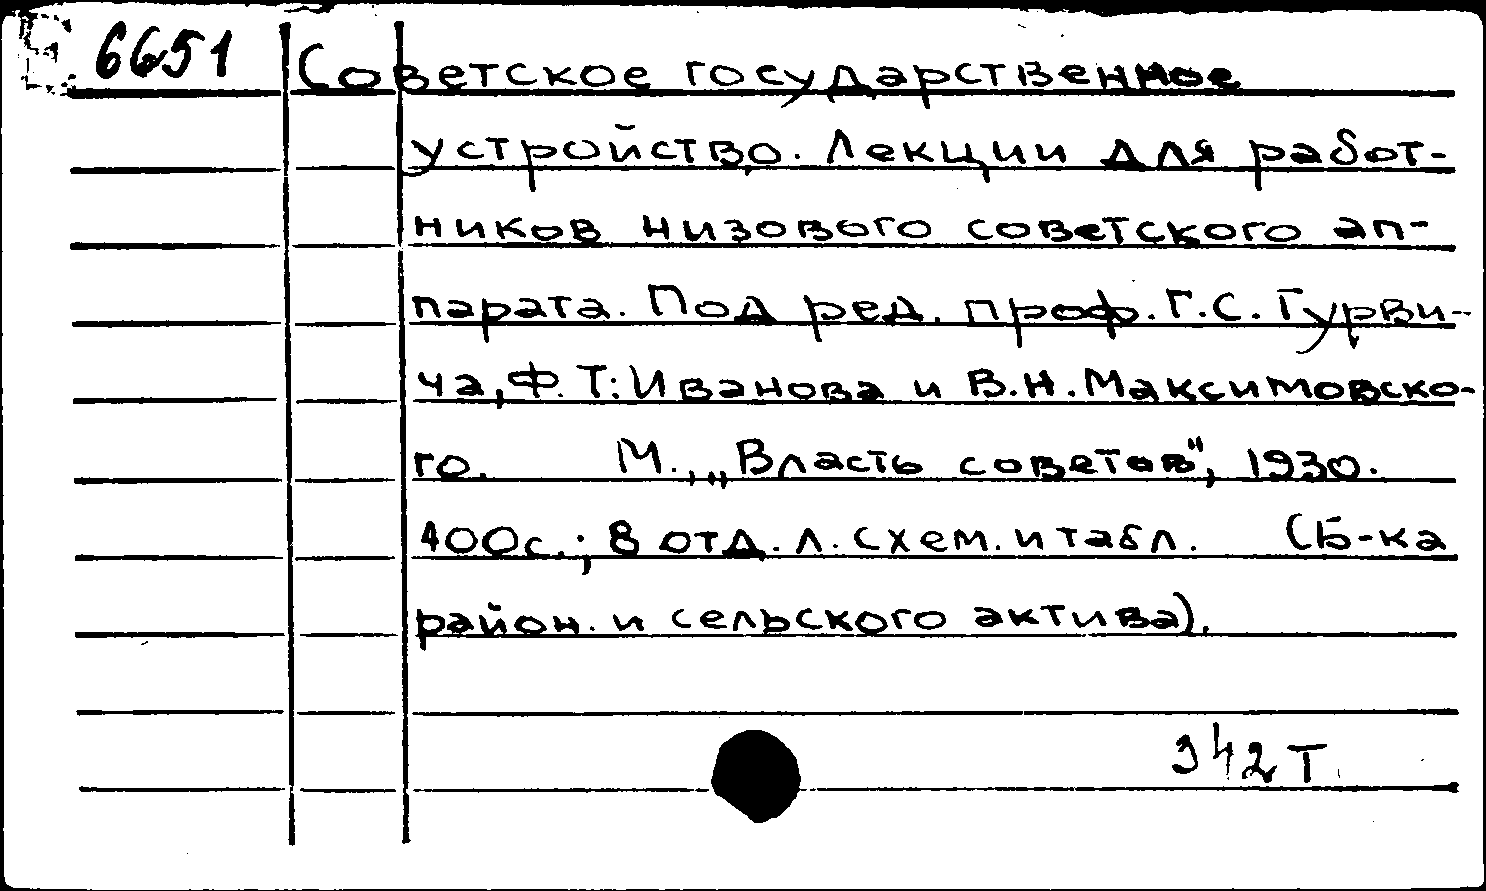 6651 Советское государственное
устройство. Лекции для работ-
ников низового советского ап-
парата. Под ред. проф. Г.С. Гурви-
ча, Ф.Т. Иванова и В.Н. Максимовско-
го. М., „Власть советов", 1930.
400с.; 8 отд. л. схем. и табл. (Б-ка
район. и сельского актива).
342Т